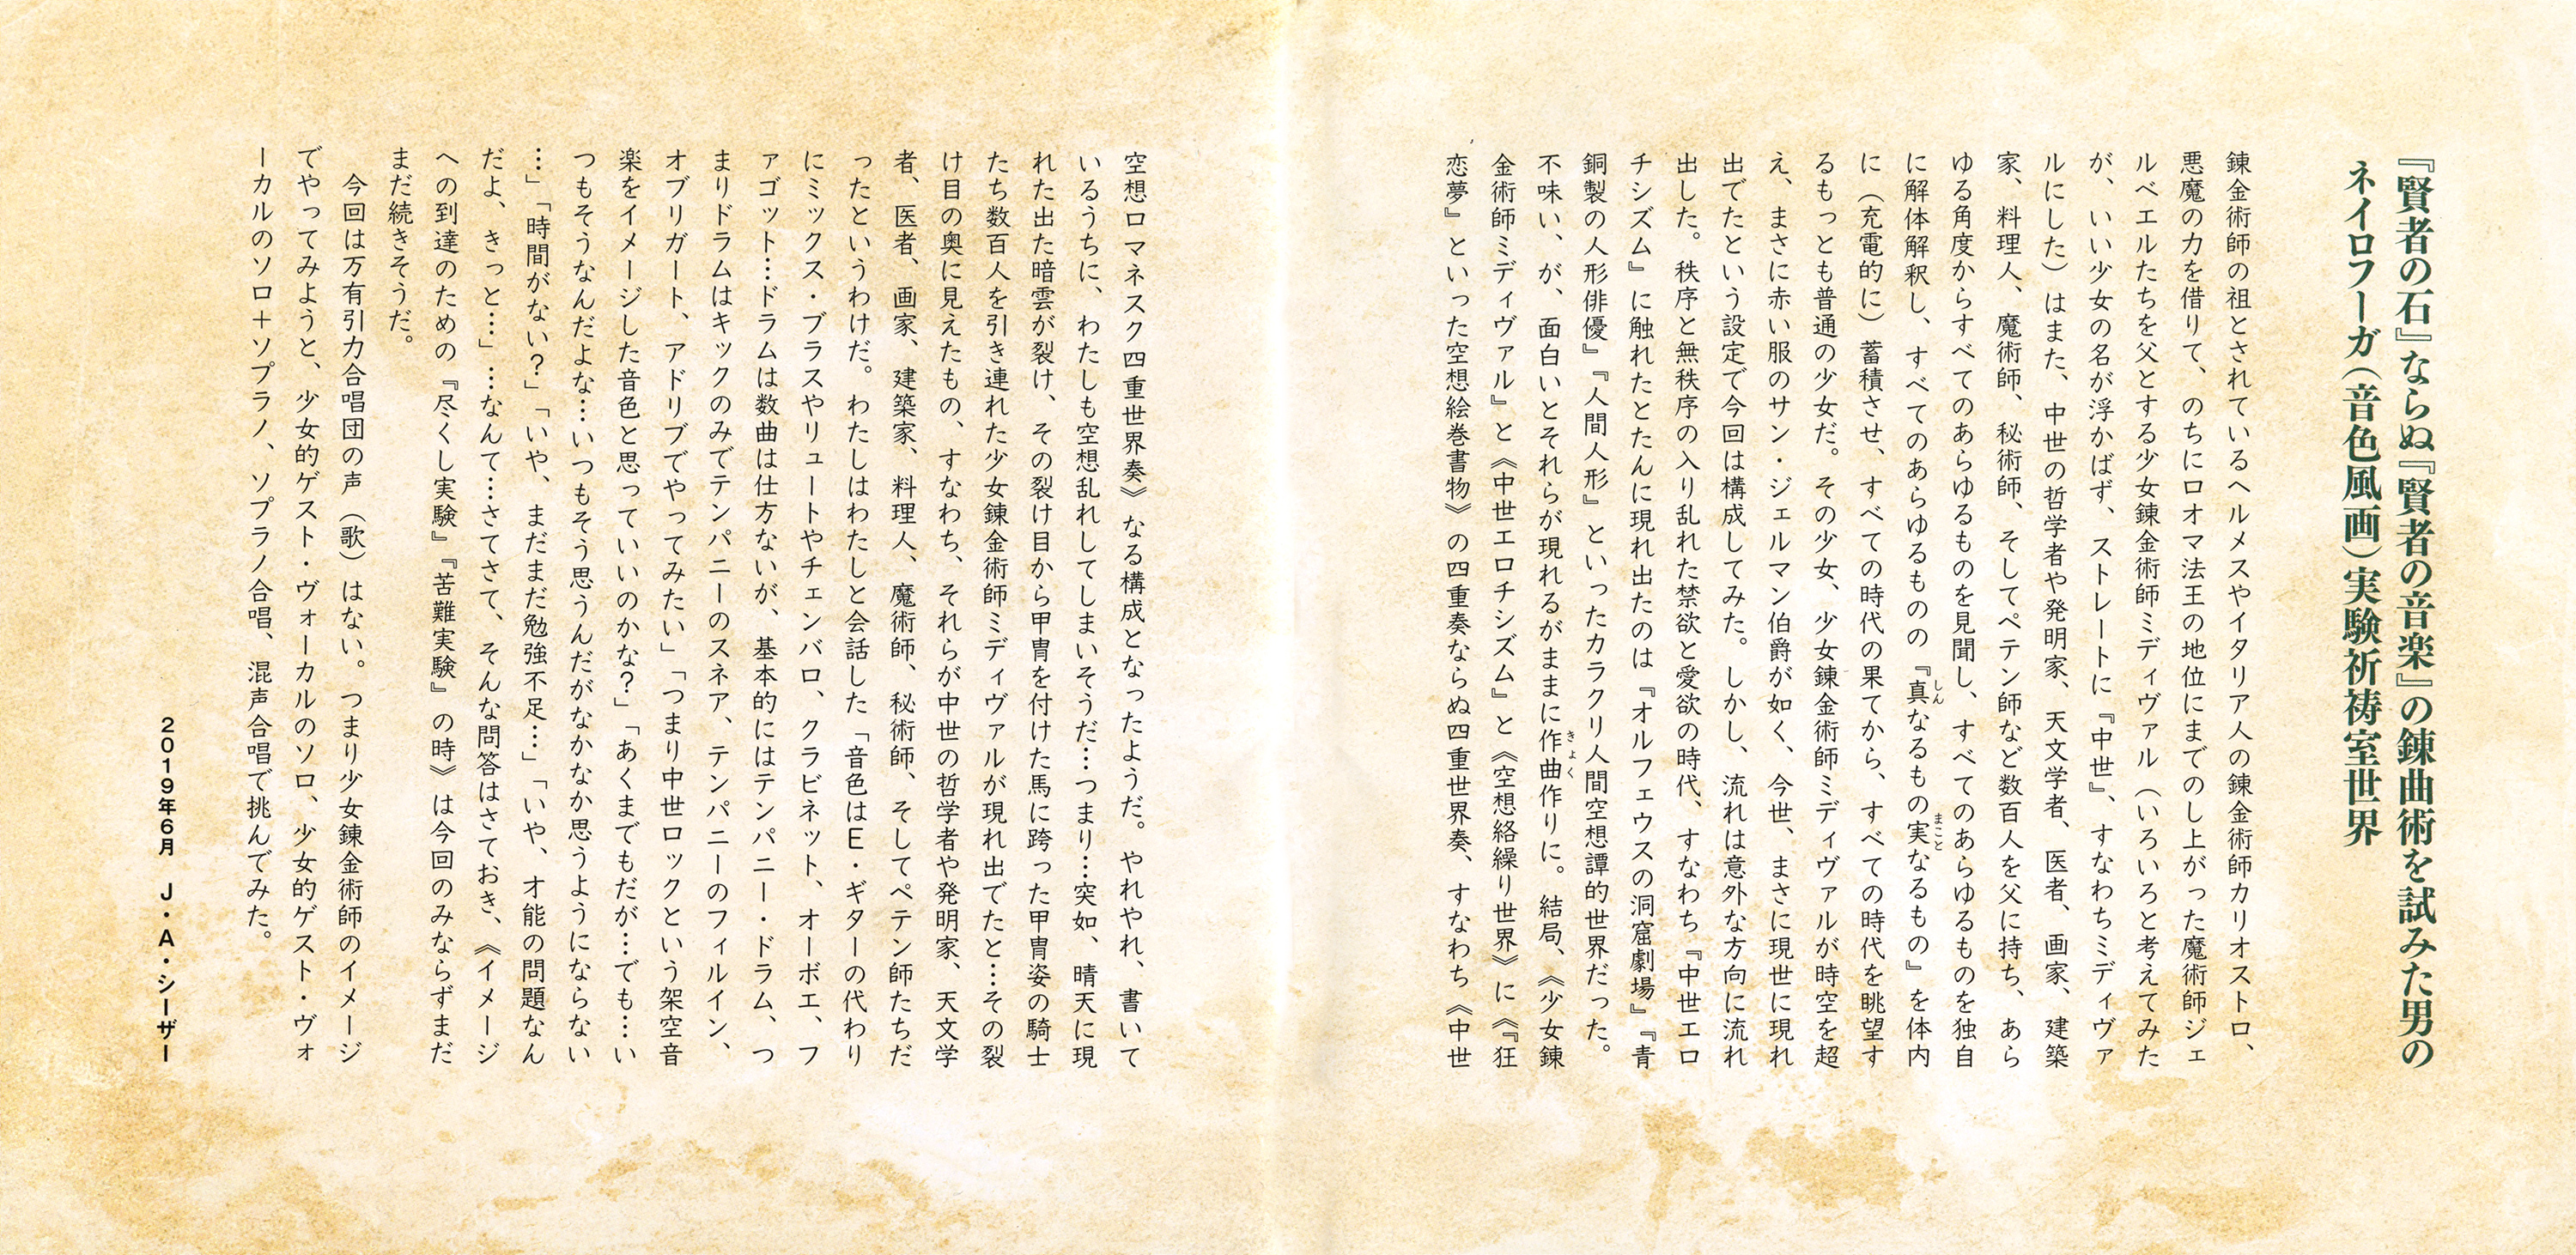 『賢者の石』ならぬ『賢者の音楽』の錬曲術を試みた男の
ネイロフーガ（音色風画）実験祈祷室世界
錬金術師の祖とされているヘルメスやイタリア人の錬金術師カリオストロ、
悪魔の力を借りて、のちにロオマ法王の地位にまでのし上がった魔術師ジェ
ルベエルたちを父とする少女錬金術師ミディヴァル（いろいろと考えてみた
が、いい少女の名が浮かばず、ストレートに『中世』、すなわちミディヴァ
ルにした）はまた、中世の哲学者や発明家、天文学者、医者、画家、建築
家、料理人、魔術師、秘術師、そしてペテン師など数百人を父に持ち、あら
ゆる角度からすべてのあらゆるものを見聞し、すべてのあらゆるものを独自
に解体解釈し、すべてのあらゆるものの『真しんなるもの実まことなるもの』を体内
に（充電的に）蓄積させ、すべての時代の果てから、すべての時代を眺望す
るもっとも普通の少女だ。その少女、少女錬金術師ミディヴァルが時空を超
え、まさに赤い服のサン・ジェルマン伯爵が如く、今世、まさに現世に現れ
出でたという設定で今回は構成してみた。しかし、流れは意外な方向に流れ
出した。秩序と無秩序の入り乱れた禁欲と愛欲の時代、すなわち『中世エロ
チシズム』に触れたとたんに現れ出たのは『オルフェウスの洞窟劇場』『青
銅製の人形俳優』『人間人形』といったカラクリ人間空想譚的世界だった。
不味い、が、面白いとそれらが現れるがままに作曲きょく作りに。結局、《少女錬
金術師ミディヴァル》と《中世エロチシズム》と《空想絡繰り世界》に《『狂
恋夢』といった空想絵巻書物》の四重奏ならぬ四重世界奏、すなわち《中世
空想ロマネスク四重世界奏》なる構成となったようだ。やれやれ、書いて
いるうちに、わたしも空想乱れしてしまいそうだ…つまり…突如、晴天に現
れた出た暗雲が裂け、その裂け目から甲冑を付けた馬に跨った甲冑姿の騎士
たち数百人を引き連れた少女錬金術師ミディヴァルが現れ出でたと…その裂
け目の奥に見えたもの、すなわち、それらが中世の哲学者や発明家、天文学
者、医者、画家、建築家、料理人、魔術師、秘術師、そしてペテン師たちだ
ったというわけだ。わたしはわたしと会話した「音色はE・ギターの代わり
にミックス・ブラスやリュートやチェンバロ、クラビネット、オーボエ、フ
ァゴット…ドラムは数曲は仕方ないが、基本的にはテンパニー・ドラム、つ
まりドラムはキックのみでテンパニーのスネア、テンパニーのフィルイン、
オブリガート、アドリブでやってみたい」「つまり中世ロックという架空音
楽をイメージした音色と思っていいのかな？」「あくまでもだが…でも…い
つもそうなんだよな…いつもそう思うんだがなかなか思うようにならない
…」「時間がない？」「いや、まだまだ勉強不足…」「いや、才能の問題なん
だよ、きっと…」…なんて…さてさて、そんな問答はさておき、《イメージ
への到達のための『尽くし実験』『苦難実験』の時》は今回のみならずまだ
まだ続きそうだ。
今回は万有引力合唱団の声（歌）はない。つまり少女錬金術師のイメージ
でやってみようと、少女的ゲスト・ヴォーカルのソロ、少女的ゲスト・ヴォ
ーカルのソロ＋ソプラノ、ソプラノ合唱、混声合唱で挑んでみた。
2019年6月　J・A・シーザー